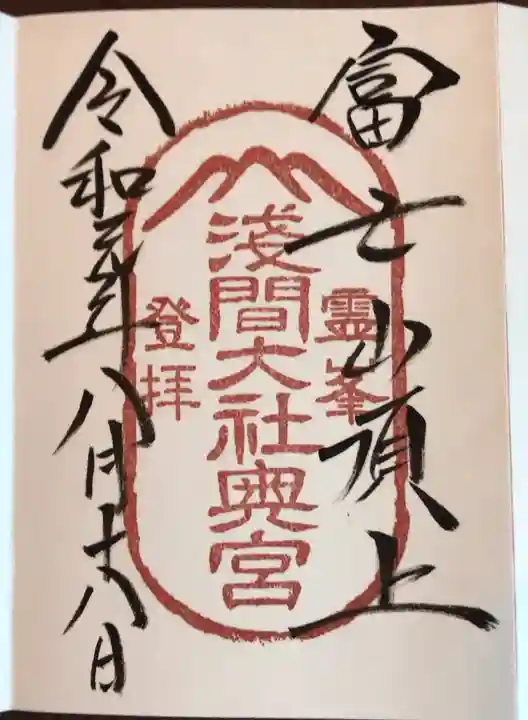 富士山頂上
霊峯
浅間大社奥宮
登拝
令和元年八月十八日